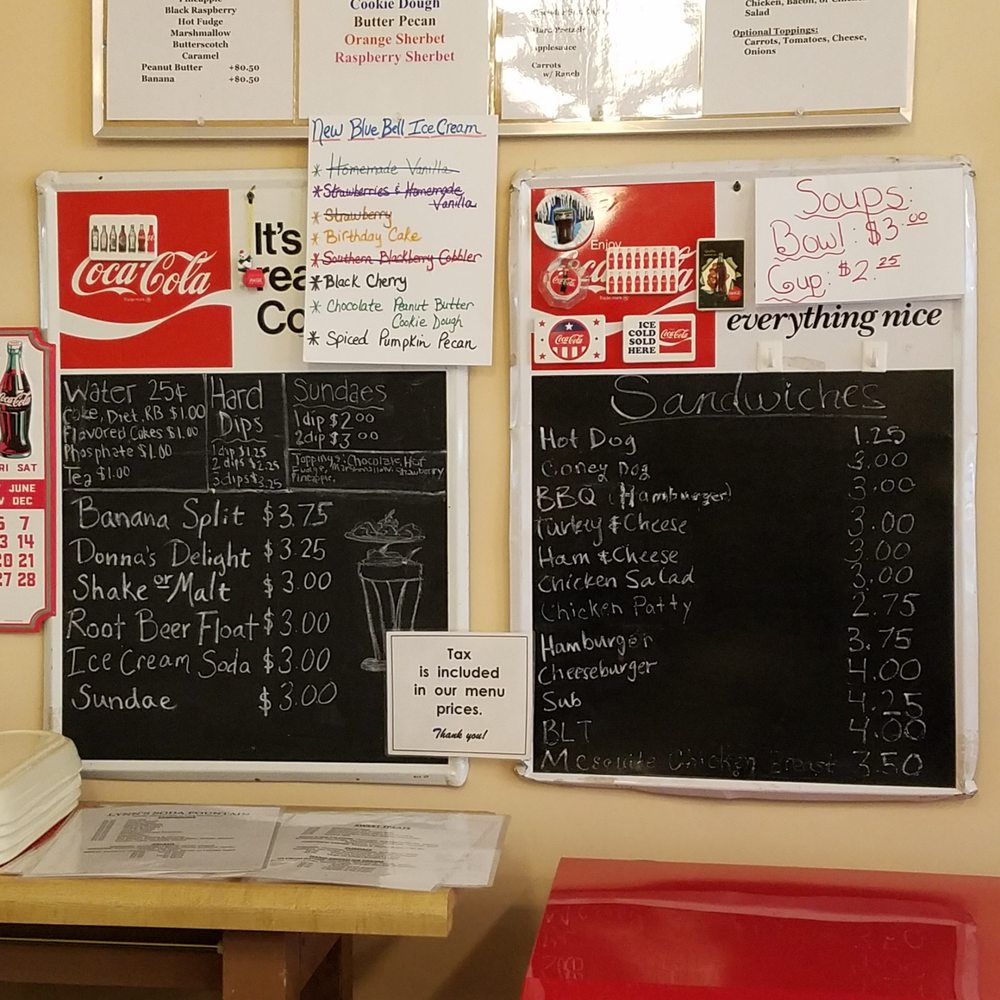 Pineapple
Black Raspberry
Hot Fudge
Marshmallow
Butterscotch
Caramel
Peanut Butter +$0.50
Banana +$0.50
Cookie Dough
Butter Pecan
Orange Sherbet
Raspberry Sherbet
Hard Pretzels
Applesauce
Carrots
w/ Ranch
Chicken, Bacon, or
Salad
Optional Toppings:
Carrots, Tomatoes, Cheese,
Onions
New Blue Bell Ice Cream
* Homemade Vanilla
* Strawberries & Homemade
Vanilla
* Strawberry
* Birthday Cake
* Southern Blackberry Cobbler
* Black Cherry
* Chocolate Peanut Butter
Cookie Dough
* Spiced Pumpkin Pecan
Coca-Cola
It's
Enjoy
Coca-Cola
Coca-Cola
ICE
COLD
SOLD
HERE
Coca-Cola
Soups:
Bowl: $3.00
Cup: $2.25
everything nice
Water 25¢
Coke, Diet, RB $1.00
Flavored Cokes $1.00
Phosphate $1.00
Tea $1.00
Hard
Dips
1 dip $1.25
2 dips $2.25
3 dips $3.25
Sundaes
1 dip $2.00
2 dip $3.00
Toppings: Chocolate, Hot
Fudge, Marshmallow, Strawberry
Pineapple,
Banana Split $3.75
Donna's Delight $3.25
Shake or Malt $3.00
Root Beer Float $3.00
Ice Cream Soda $3.00
Sundae $3.00
Tax
is included
in our menu
prices.
Thank you!
Sandwiches
Hot Dog 1.25
Coney Dog 3.00
BBQ (Hamburger) 3.00
Turkey & Cheese 3.00
Ham & Cheese 3.00
Chicken Salad 3.00
Chicken Patty 2.75
Hamburger 3.75
Cheeseburger 4.00
Sub 4.25
BLT 4.00
Mesquite Chicken Breast 3.50
Coca-Cola
FRI SAT
JUNE
DEC
6 7
13 14
20 21
27 28